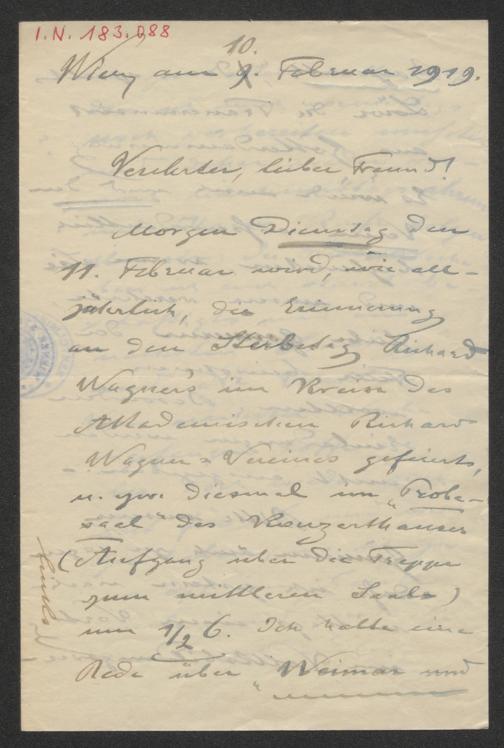 I.N. 183.088
10.
Wien am 9. Februar 1919.
Verehrter, lieber Freund!
Morgen Dienstag den
11. Februar wird, wie all-
jährlich, die Erinnerung
an den Sterbetag Richard
Wagner's im Kreise des
Akademischen Richard
Wagner-Vereines gefeiert,
u. zw. diesmal im "Probe-
saal" des Konzerthauses
(Aufgang über die Treppe
zum mittleren Saale)
links
um 1/2 6. Ich halte eine
Rede über "Weimar und